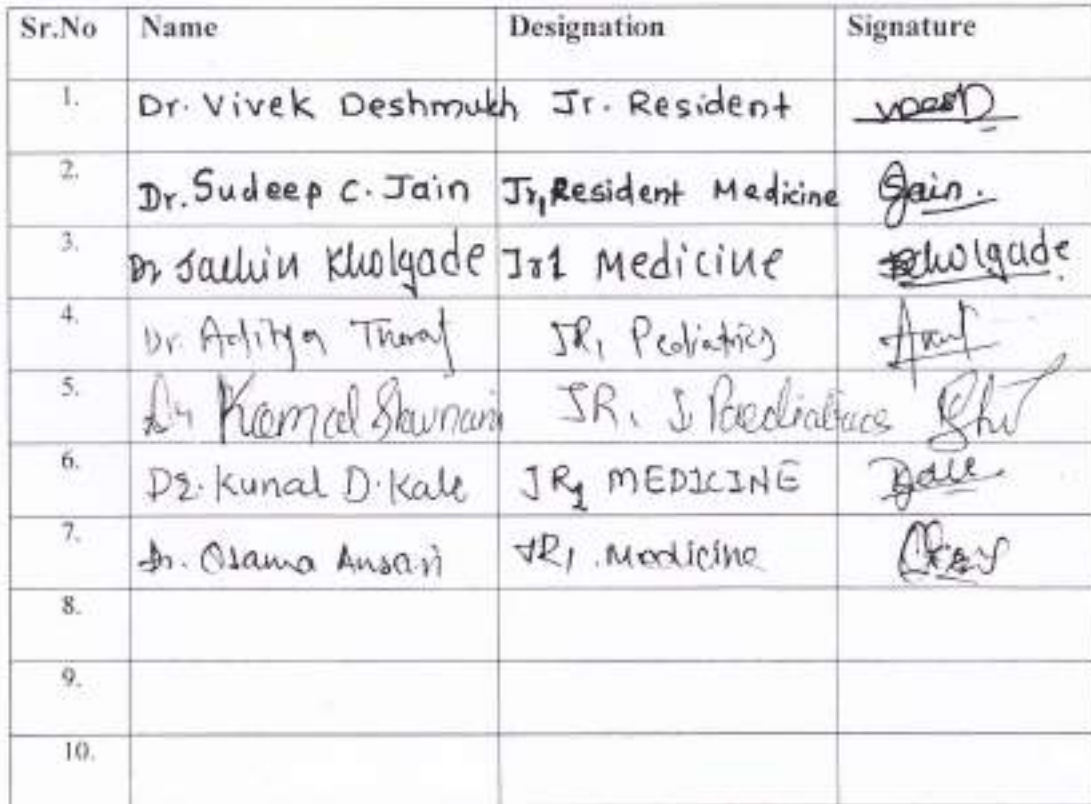 Sr.No Name Designation Signature
1. Dr. Vivek Deshmukh Jr. Resident
2. Dr. Sudeep C. Jain Jr1 Resident Medicine Jain.
3. Dr Sachin Kholgade Jr1 Medicine Kholgade
4. Dr. Aditya Thorat JR1 Pediatrics
5. Dr Kamal JR1
6. Dr. Kunal D. Kale JR1 MEDICINE
7. Dr. Osama Ansari JR1 Medicine
8.
9.
10.